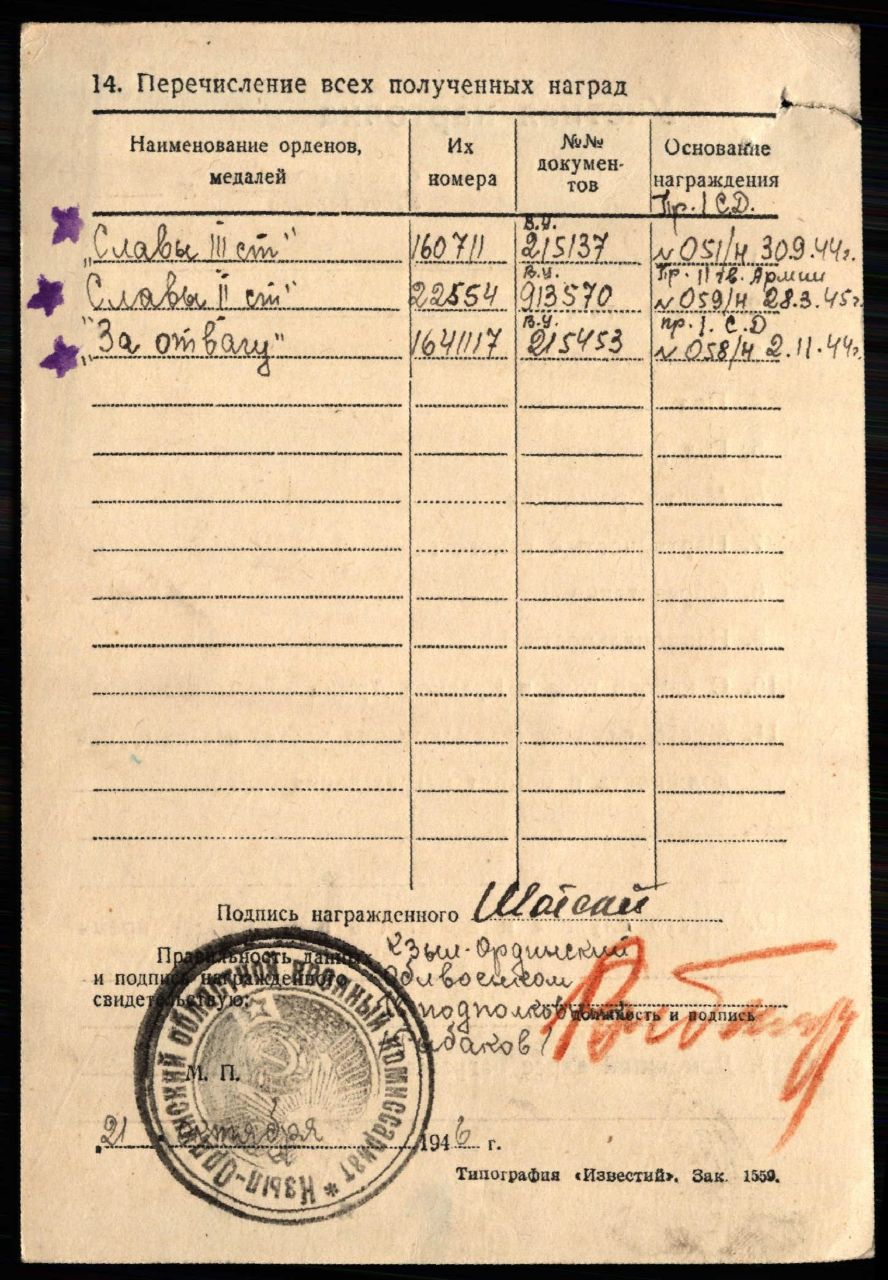 14. Перечисление всех полученных наград
Наименование орденов, медалей
Их номера
№№ докумен-тов
Основание награждения
Пр. 1 С.Д.
"Славы III ст" 160711 В.У. 215137 N 051/н 30.9.44г.
Пр. 11 гв. Армии
Славы II ст" 22554 В.У. 913570 N 059/н 28.3.45г.
пр. 1. С.Д
"За отвагу" 1641117 В.У. 215453 N 058/н 2.11.44г.
Подпись награжденного
Правильность данных Кзыл-Ординский
и подпись награжденного Облвоенком
свидетельствую: подполковник
должность и подпись
Рыбаков
М. П.
21 октября 1946 г.
Кзыл-Ординский областной военный комиссариат
Типография «Известий». Зак. 1559.